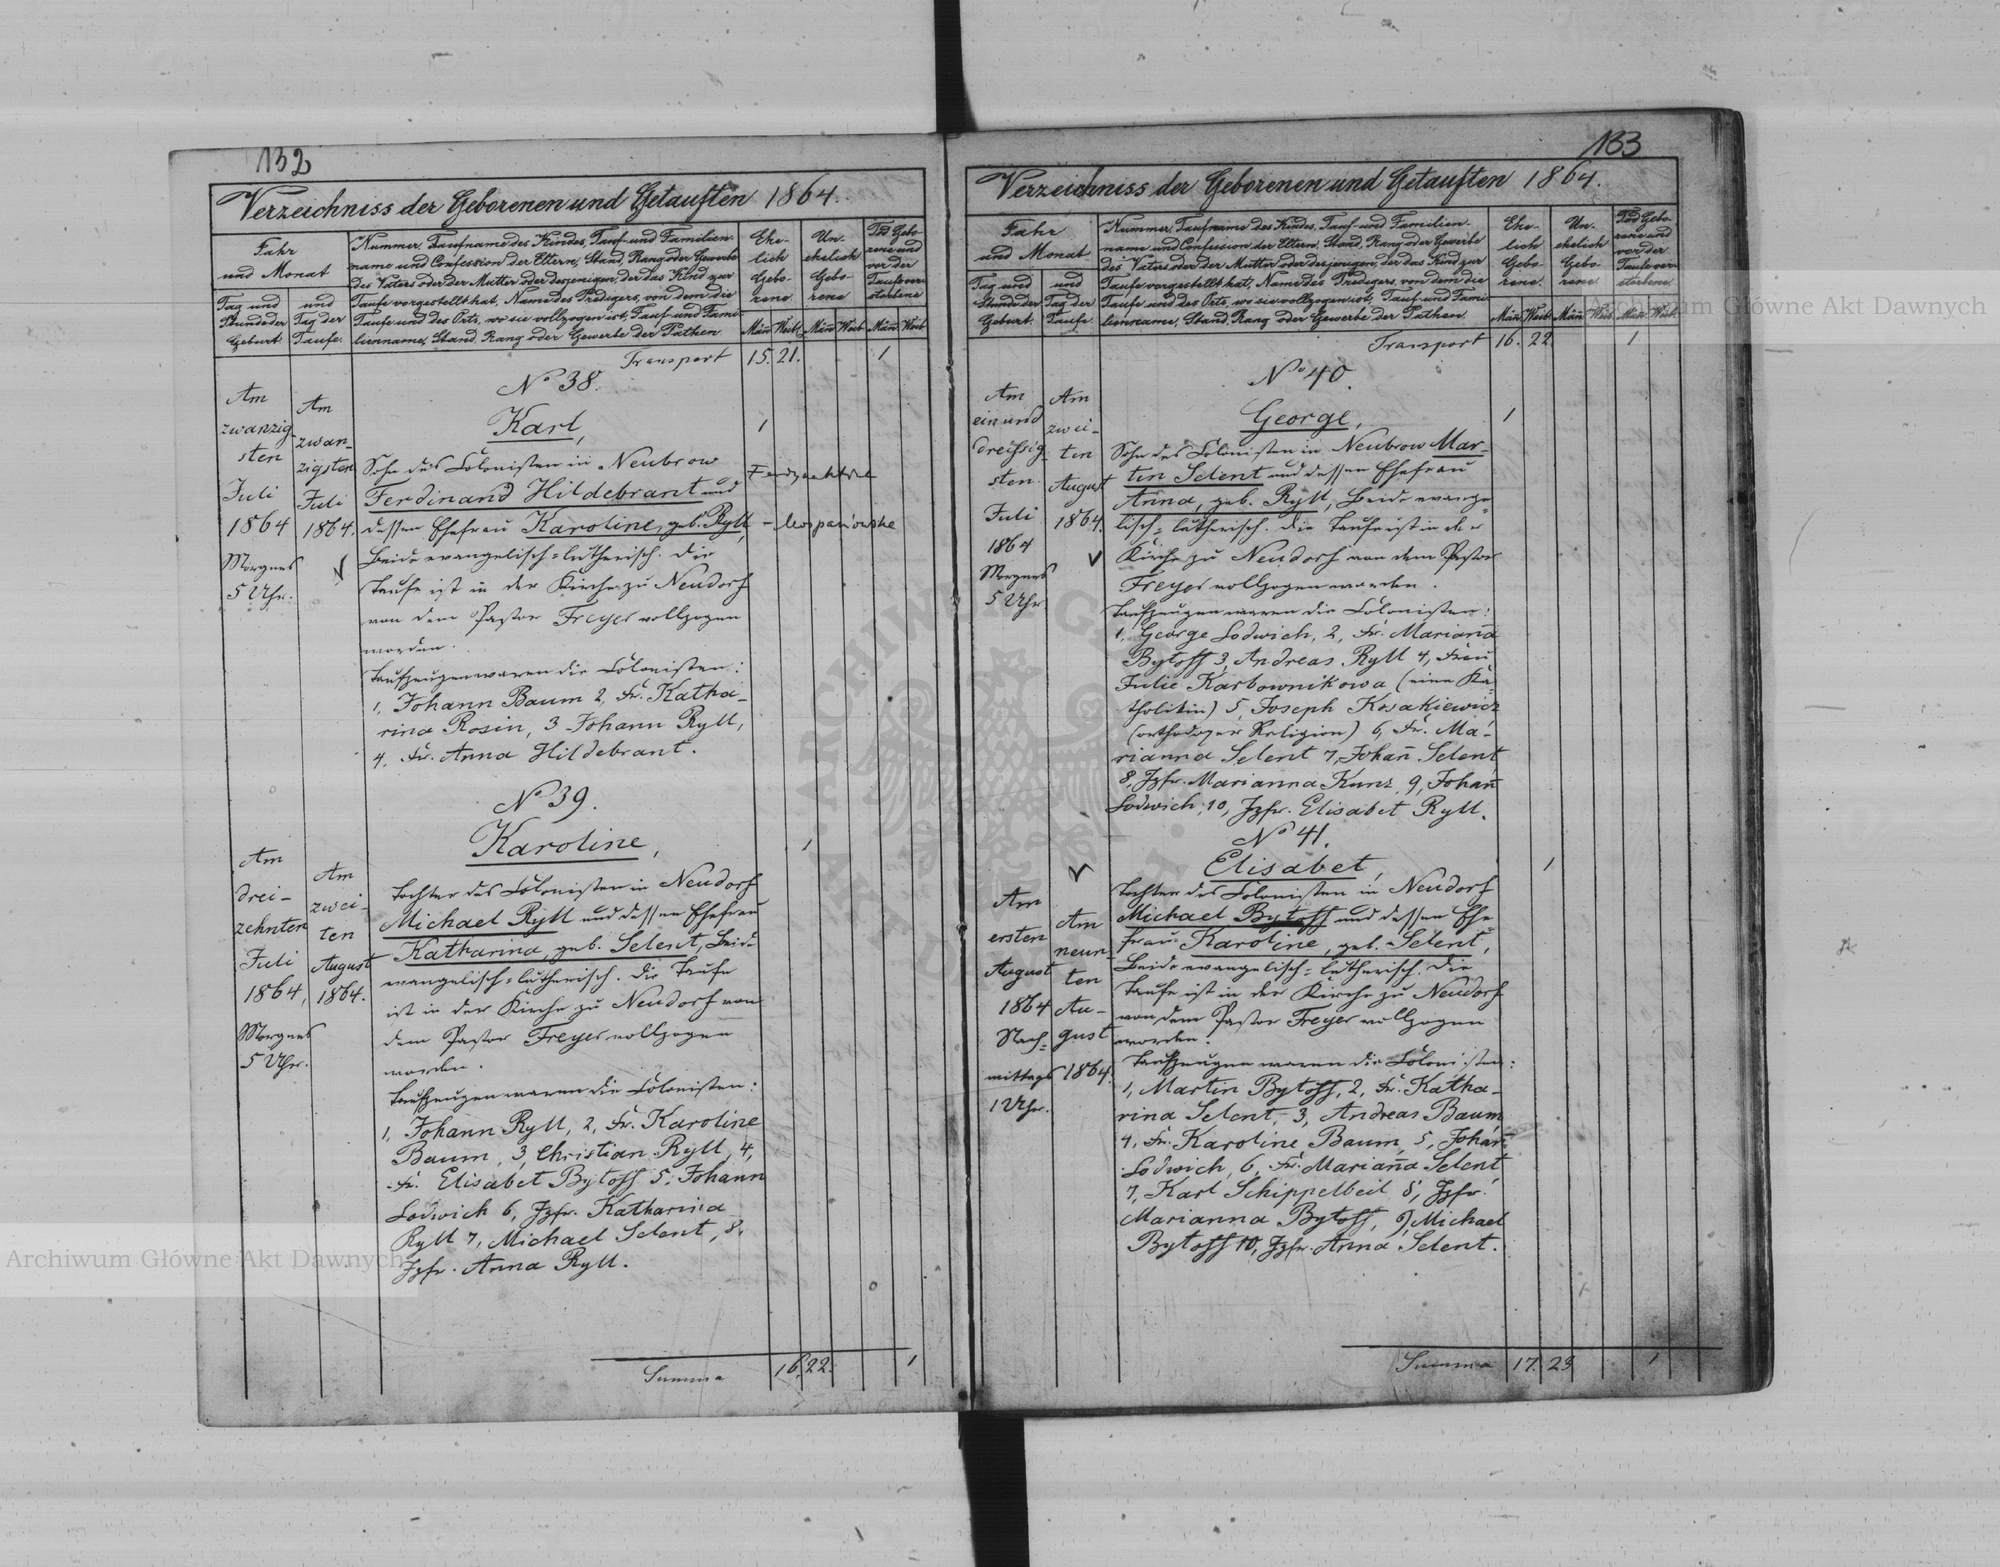 132
Verzeichniss der Geborenen und Getauften 1864.
Jahr
und Monat
Tag und
Stunde der
Geburt
und
Tag der
Taufe.
Nummer, Taufname des Kindes, Tauf- und Familien-
name und Confession der Eltern, Stand, Rang oder Gewerbe
des Vaters oder der Mutter oder desjenigen, der das Kind zur
Taufe vorgestellt hat, Name des Predigers, von dem die
Taufe und des Orts, wo sie vollzogen ist, Tauf- und Fami-
lienname, Stand, Rang oder Gewerbe der Pathen.
Ehe-
lich
Gebo-
rene
Un-
ehelich
Gebo-
rene
Tod Gebo-
rene und
vor der
Taufe ver-
storbene
Män Weib Män Weib Män Weib
Transport 15. 21. 1
No 38.
Am
zwanzig-
sten
Juli
1864
Morgens
5 Uhr.
Am
zwan-
zigsten
Juli
1864.
Karl, 1
Sohn des Colonisten in Neubrow
Ferdinand Hildebrant und
dessen Ehefrau Karoline, geb. Ryll,
Beide evangelisch-lutherisch. Die
Taufe ist in der Kirche zu Neudorf
von dem Pastor Freyer vollzogen
worden.
Taufzeugen waren die Colonisten:
1, Johann Baum 2, Fr. Katha-
rina Rosin, 3 Johann Ryll,
4, Fr. Anna Hildebrant.
No 39.
Am
drei-
zehnten
Juli
1864,
Morgens
5 Uhr.
Am
zwei-
ten
August
1864.
Karoline, 1
Tochter des Colonisten in Neudorf
Michael Ryll und dessen Ehefrau
Katharina, geb. Selent, Beide
evangelisch-lutherisch. Die Taufe
ist in der Kirche zu Neudorf von
dem Pastor Freyer vollzogen
worden.
Taufzeugen waren die Colonisten:
1, Johann Ryll, 2, Fr. Karoline
Baum, 3, Christian Ryll, 4,
Fr. Elisabet Bytoff 5, Johann
Lodwich 6, Jgfr. Katharina
Ryll 7, Michael Selent, 8,
Jgfr. Anna Ryll.
Summa 16. 22. 1
133
Verzeichniss der Geborenen und Getauften 1864.
Jahr
und Monat
Tag und
Stunde der
Geburt.
und
Tag der
Taufe
Nummer, Taufname des Kindes, Tauf- und Familien-
name und Confession der Eltern, Stand, Rang oder Gewerbe
des Vaters oder der Mutter oder desjenigen, der das Kind zur
Taufe vorgestellt hat, Name des Predigers, von dem die
Taufe und des Orts, wo sie vollzogen ist, Tauf- und Fami-
lienname, Stand, Rang oder Gewerbe der Pathen.
Ehe-
lich
Gebo-
rene.
Un-
ehelich
Gebo-
rene.
Tod Gebo-
rene und
vor der
Taufe ver-
storbene.
Män Weib Män Weib Män Weib
Transport 16. 22. 1
No 40.
Am
einund
dreißig-
sten
Juli
1864
Morgens
5 Uhr.
Am
zwei-
ten
August
1864.
George, 1
Sohn des Colonisten in Neubrow Mar-
tin Selent und dessen Ehefrau
Anna, geb. Ryll, Beide evange-
lisch-lutherisch. Die Taufe ist in der
Kirche zu Neudorf von dem Pastor
Freyer vollzogen worden.
Taufzeugen waren die Colonisten:
1, George Lodwich, 2, Fr. Marianna
Bytoff 3, Andreas Ryll 4, Frau
Julie Karbownikowa (eine Ka-
tholikin) 5, Joseph Kosakiewicz
(orthodoxer Religion) 6, Fr. Ma-
rianna Selent 7, Johan̄ Selent
8, Jgfr. Marianna Kunz, 9, Johan̄
Lodwich, 10, Jgfr. Elisabet Ryll.
No 41.
Am
ersten
August
1864
Nach-
mittags
1 Uhr.
Am
neun-
ten
Au-
gust
1864.
Elisabet, 1
Tochter des Colonisten in Neudorf
Michael Bytoff und dessen Ehe
frau Karoline, geb. Selent,
Beide evangelisch-lutherisch. Die
Taufe ist in der Kirche zu Neudorf
von dem Pastor Freyer vollzogen
worden.
Taufzeugen waren die Colonisten:
1, Martin Bytoff, 2, Fr. Katha-
rina Selent, 3, Andreas Baum
4, Fr. Karoline Baum, 5, Johan̄
Lodwich, 6, Fr. Marian̄a Selent
7, Karl Schippelbeil 8, Jgfr.
Marianna Bytoff, 9, Michael
Bytoff 10, Jgfr. Anna Selent.
Summa 17. 23 1
Archiwum Główne Akt Dawnych
Archiwum Główne Akt Dawnych